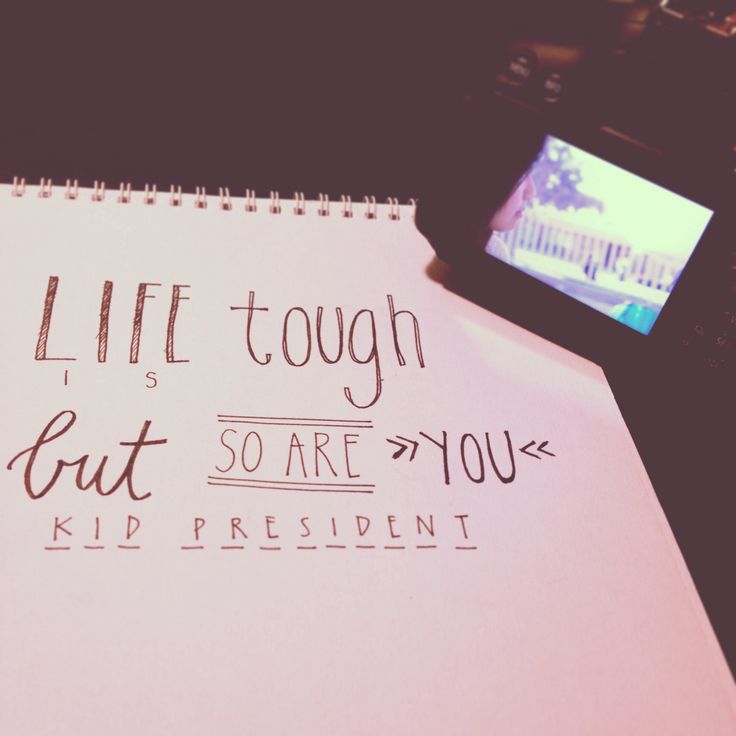 MENU
LIFE tough
IS
but SO ARE »YOU«
KID PRESIDENT